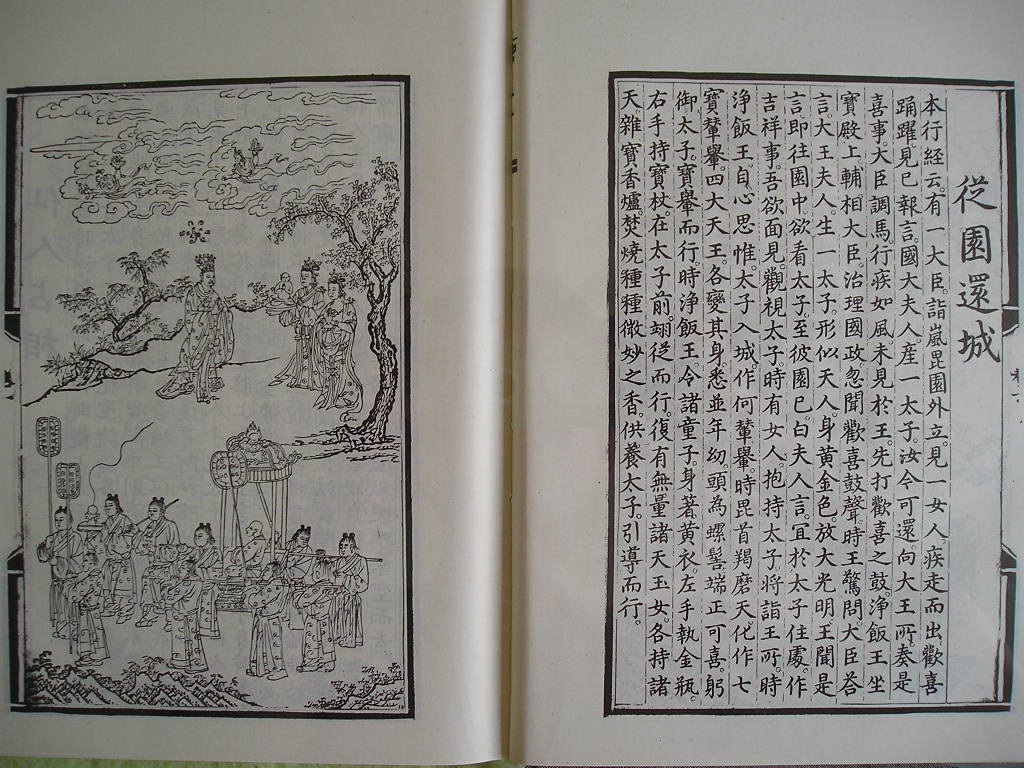 從園還城
本行経云。有一大臣。詣嵐毘園外立。見一女人。疾走而出。歡喜
踊躍。見已報言。國大夫人。産一太子。汝今可還。向大王所。奏是
喜事。大臣調馬。行疾如風。未見於王。先打歡喜之鼓。淨飯王坐
寶殿上。輔相大臣。治理國政。忽聞歡喜鼓聲。時王驚問。大臣荅
言。大王夫人。生一太子。形似天人。身黃金色。放大光明。王聞是
言。即往園中。欲看太子。至彼園已。白夫人言。宜於太子住處。作
吉祥事。吾欲面見。觀視太子。時有女人。抱持太子。將詣王所。時
淨飯王。自心思惟。太子入城。作何輦轝。時毘首羯磨天。化作七
寶輦轝。四大天王。各變其身。悉並年幼。頭為螺髻。端正可喜。躬
御太子。寶轝而行。時淨飯王。令諸童子。身著黃衣。左手執金瓶。
右手持寶杖。在太子前。翊從而行。復有無量諸天玉女。各持諸
天雜寶香爐。焚燒種種微妙之香。供養太子。引導而行。